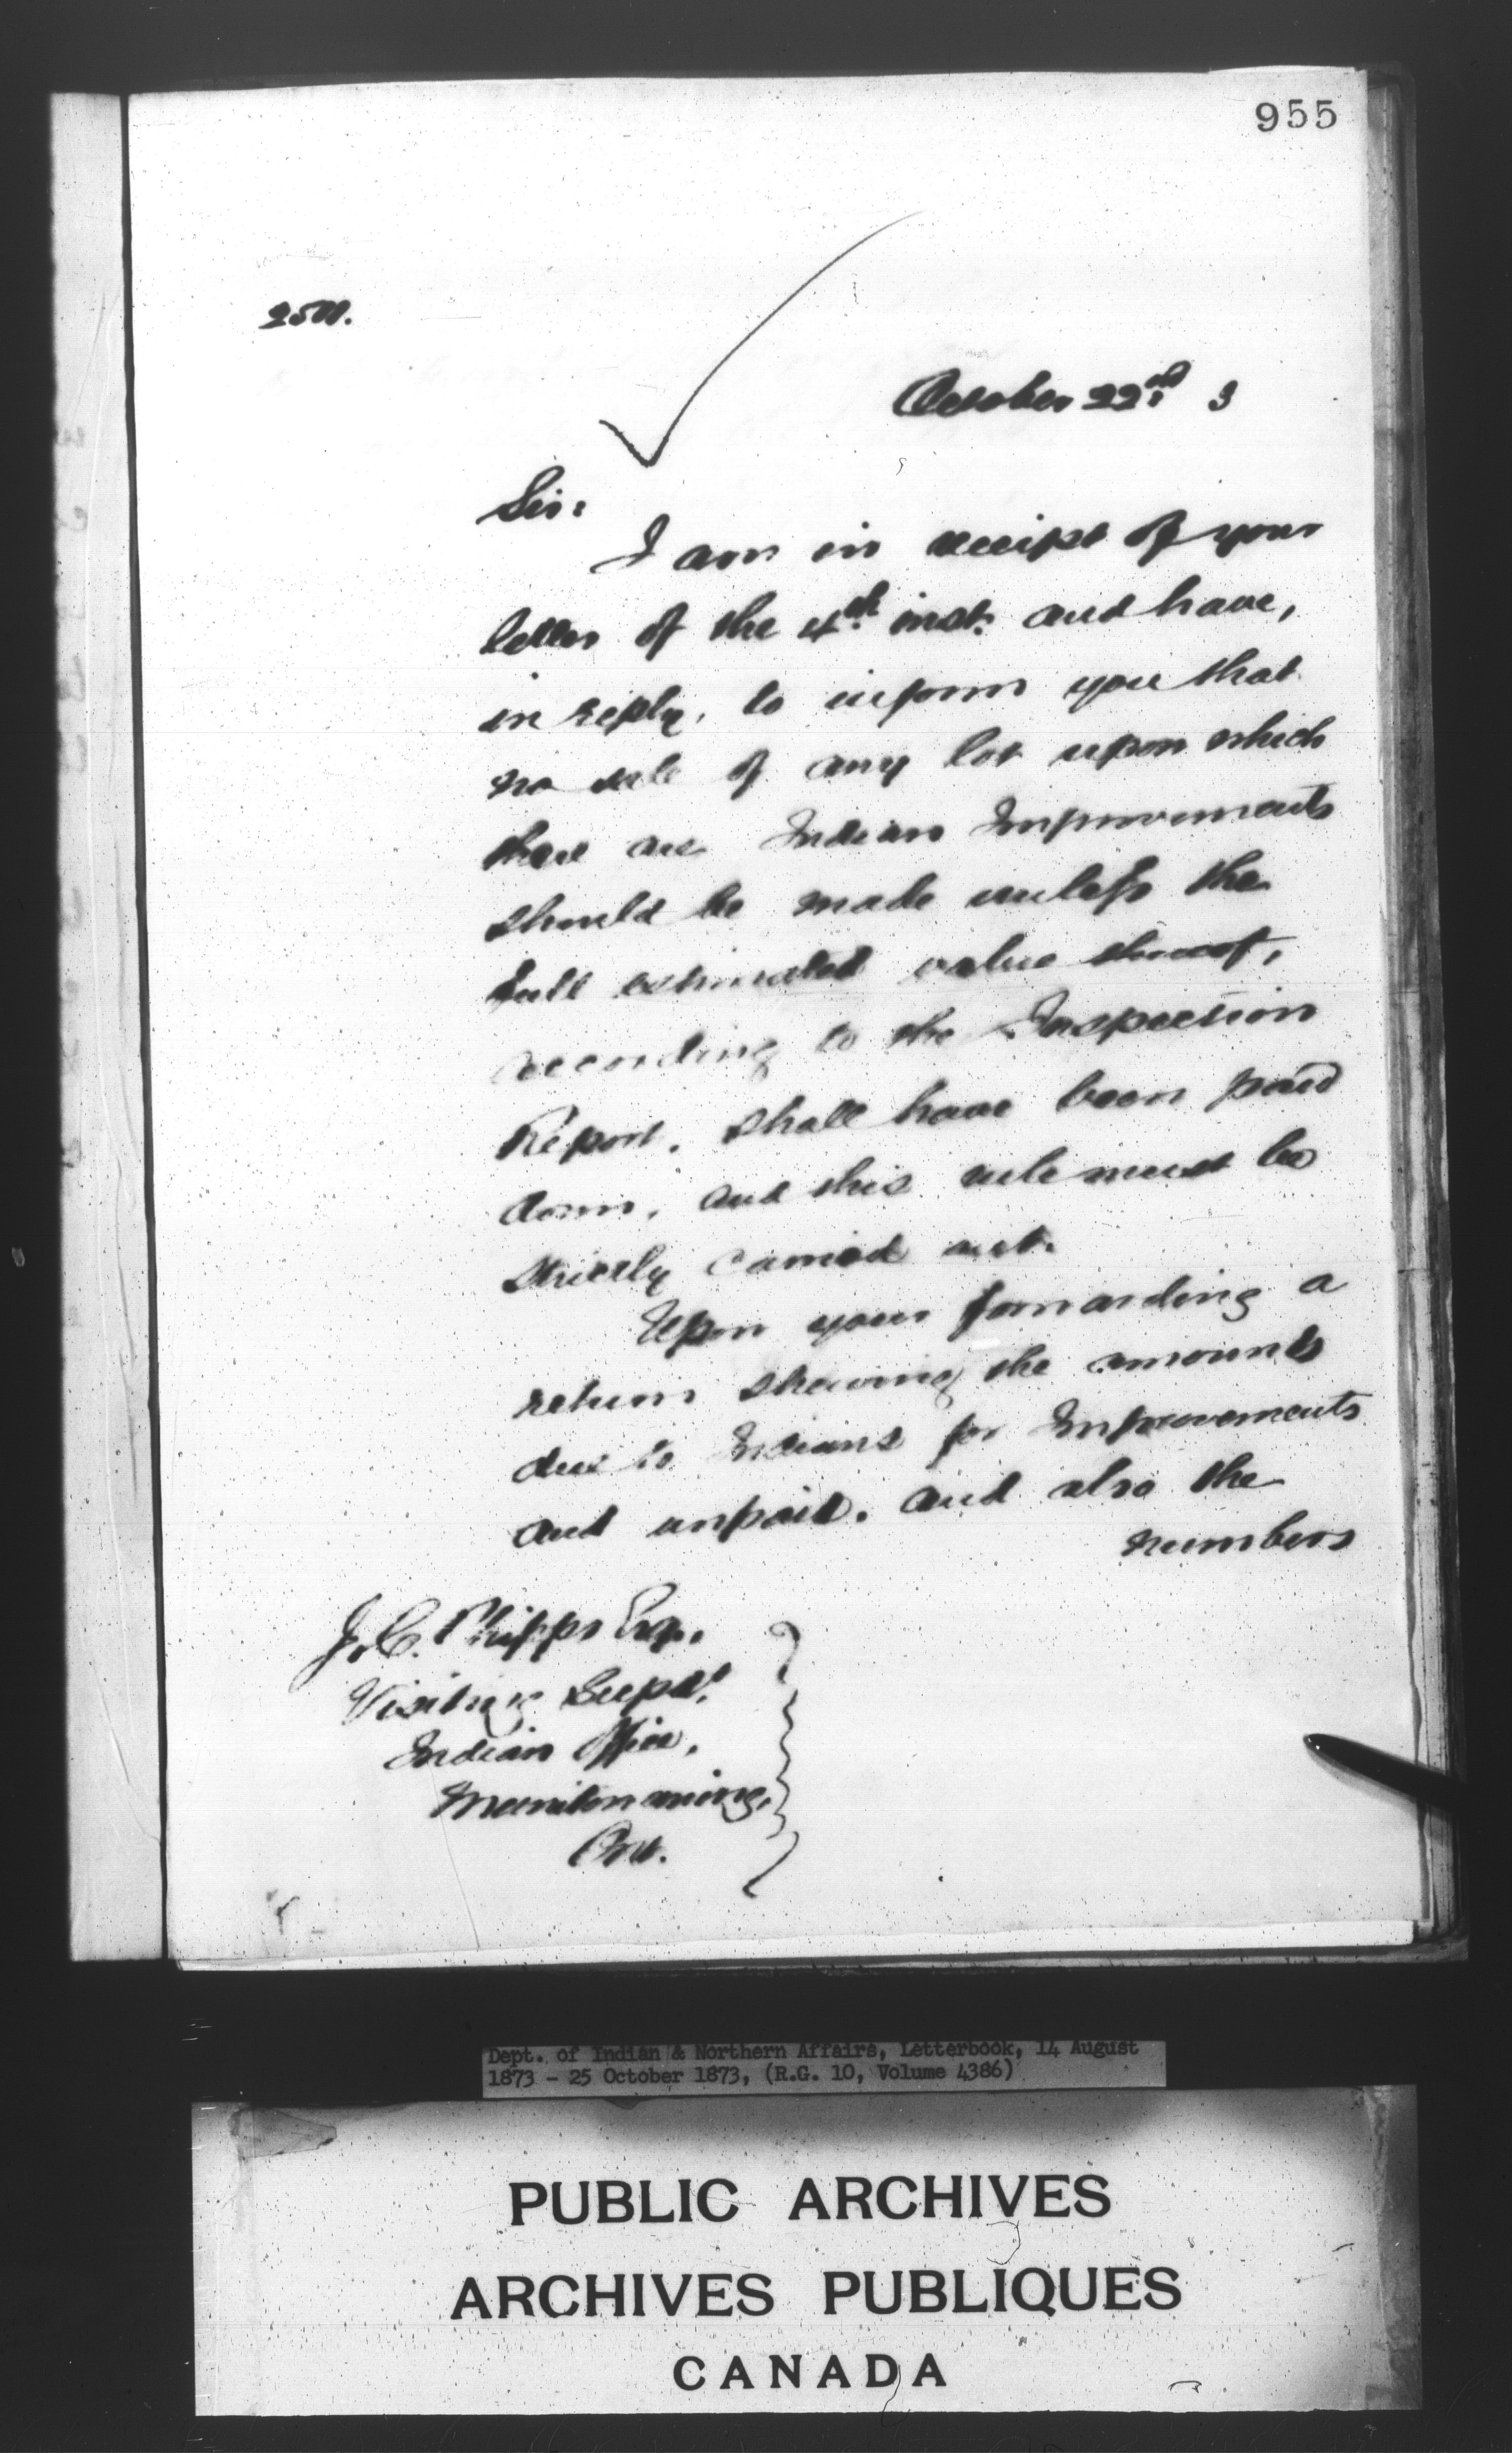 955
October 22nd 3
Sir:
I am in receipt of your
letter of the 4th inst. and have,
in reply, to inform you that
no sale of any lot upon which
there are Indian Improvements
should be made unless the
full estimated value thereof,
according to the Inspection
Report, shall have been paid
down, and this rule must be
strictly carried out.
Upon your forwarding a
return shewing the amounts
due to Indians for Improvements
and unpaid, and also the
numbers
J.C. Phipps Esq.,
Visiting Supdt.
Indian Office,
Manitowaning,
Ont.
Dept. of Indian & Northern Affairs, Letterbook, 14 August
1873 - 25 October 1873, (R.G. 10, Volume 4386)
PUBLIC ARCHIVES
ARCHIVES PUBLIQUES
CANADA